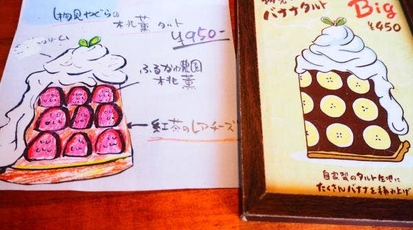 物見やぐらの
桃薫 タルト
¥950-
ふるかわ農園
桃薫
紅茶のレアチーズ
バナナタルト
Big
¥450
自家製のタルト生地に
たくさんバナナを積み上げ